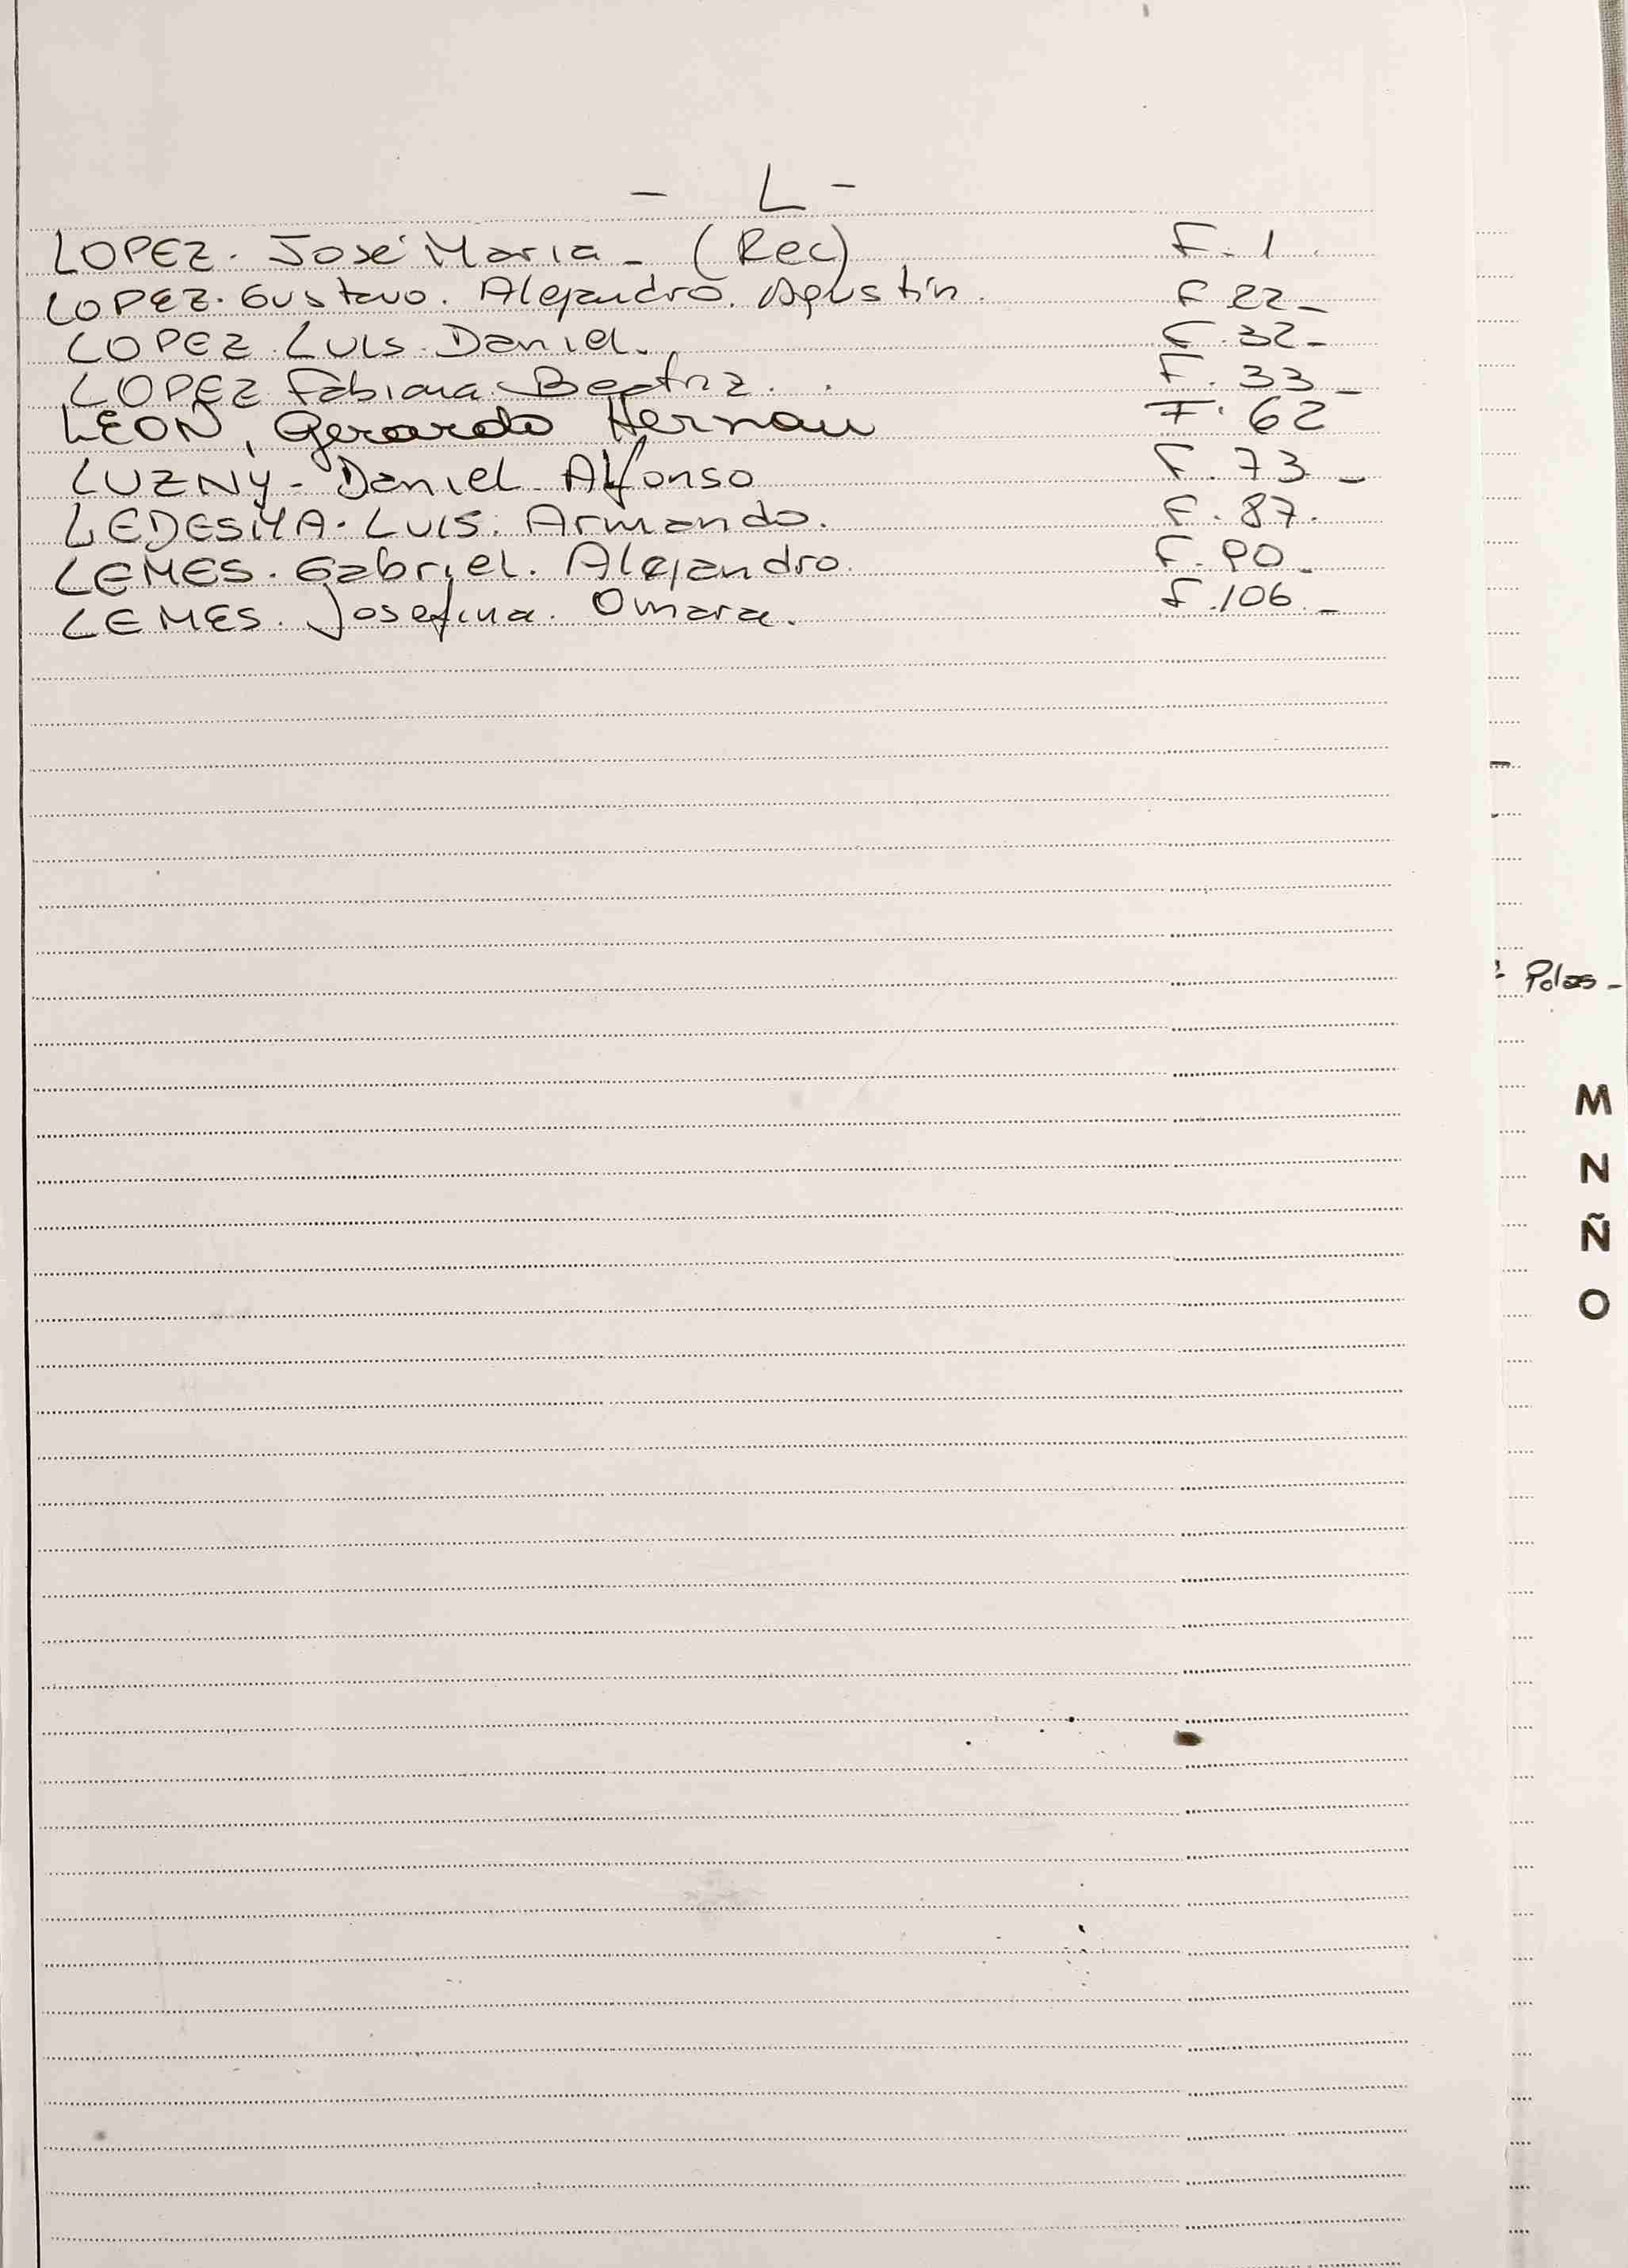 - L -
LOPEZ. José Maria - (Rec) F. 1.
LOPEZ. Gustavo. Alejandro. Agustín. F 22-
LOPEZ. Luis. Daniel. F. 32-
LOPEZ Fabiana Beatriz. . F. 33-
LEON, Gerardo Hernan F. 62
LUZNY - Daniel Alfonso F. 73-
LEDESMA. Luis. Armando. F. 87.
LEMES. Gabriel. Alejandro. F. 90-
LEMES. Josefina. Omara. F. 106-
Polas -
M
N
Ñ
O